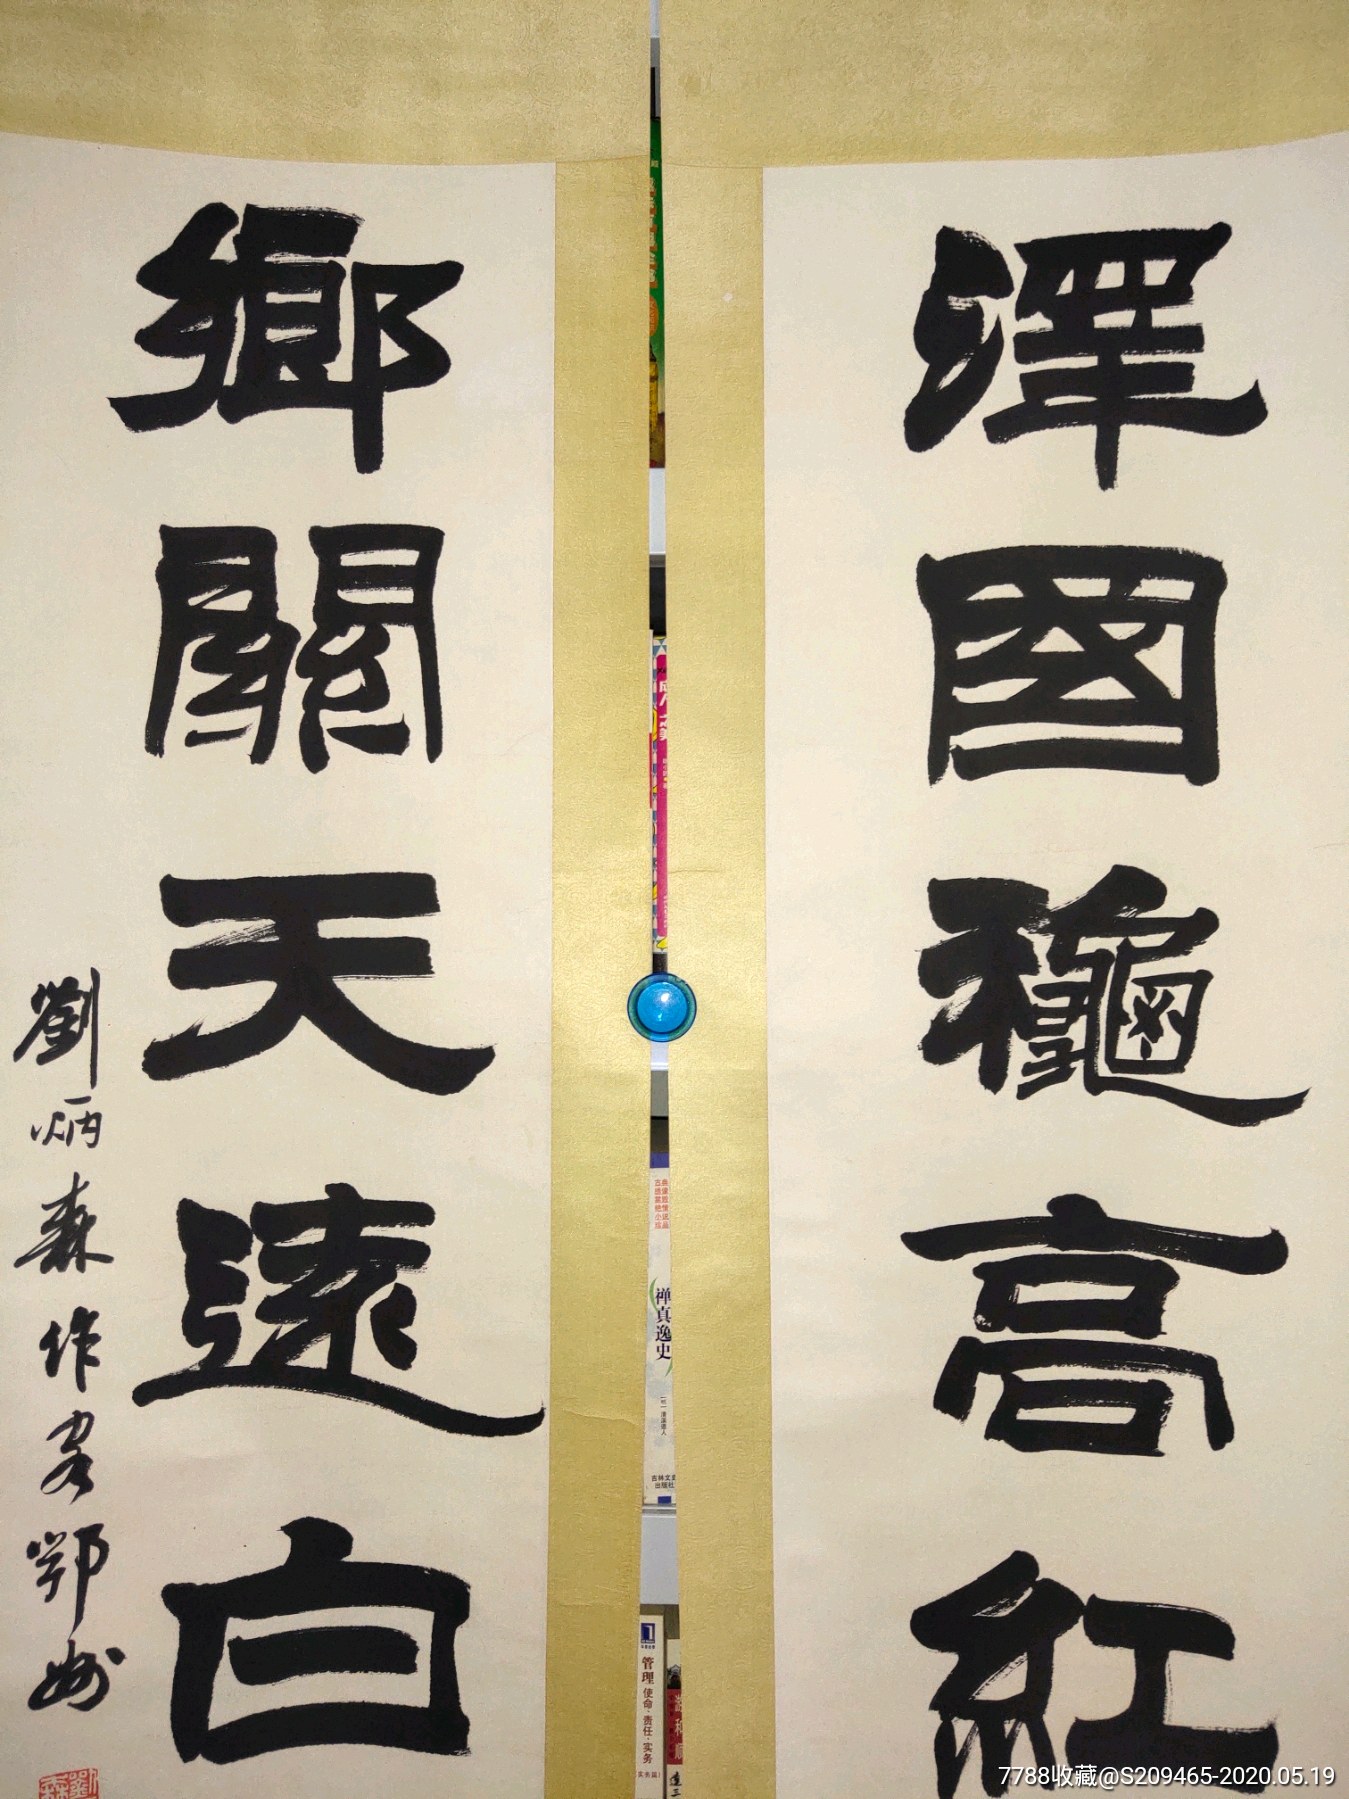 澤國龝高紅
鄉關天遠白
劉炳森作客鄂州
禅真逸史
管理 使命·责任·实务
7788收藏@S209465-2020.05.19